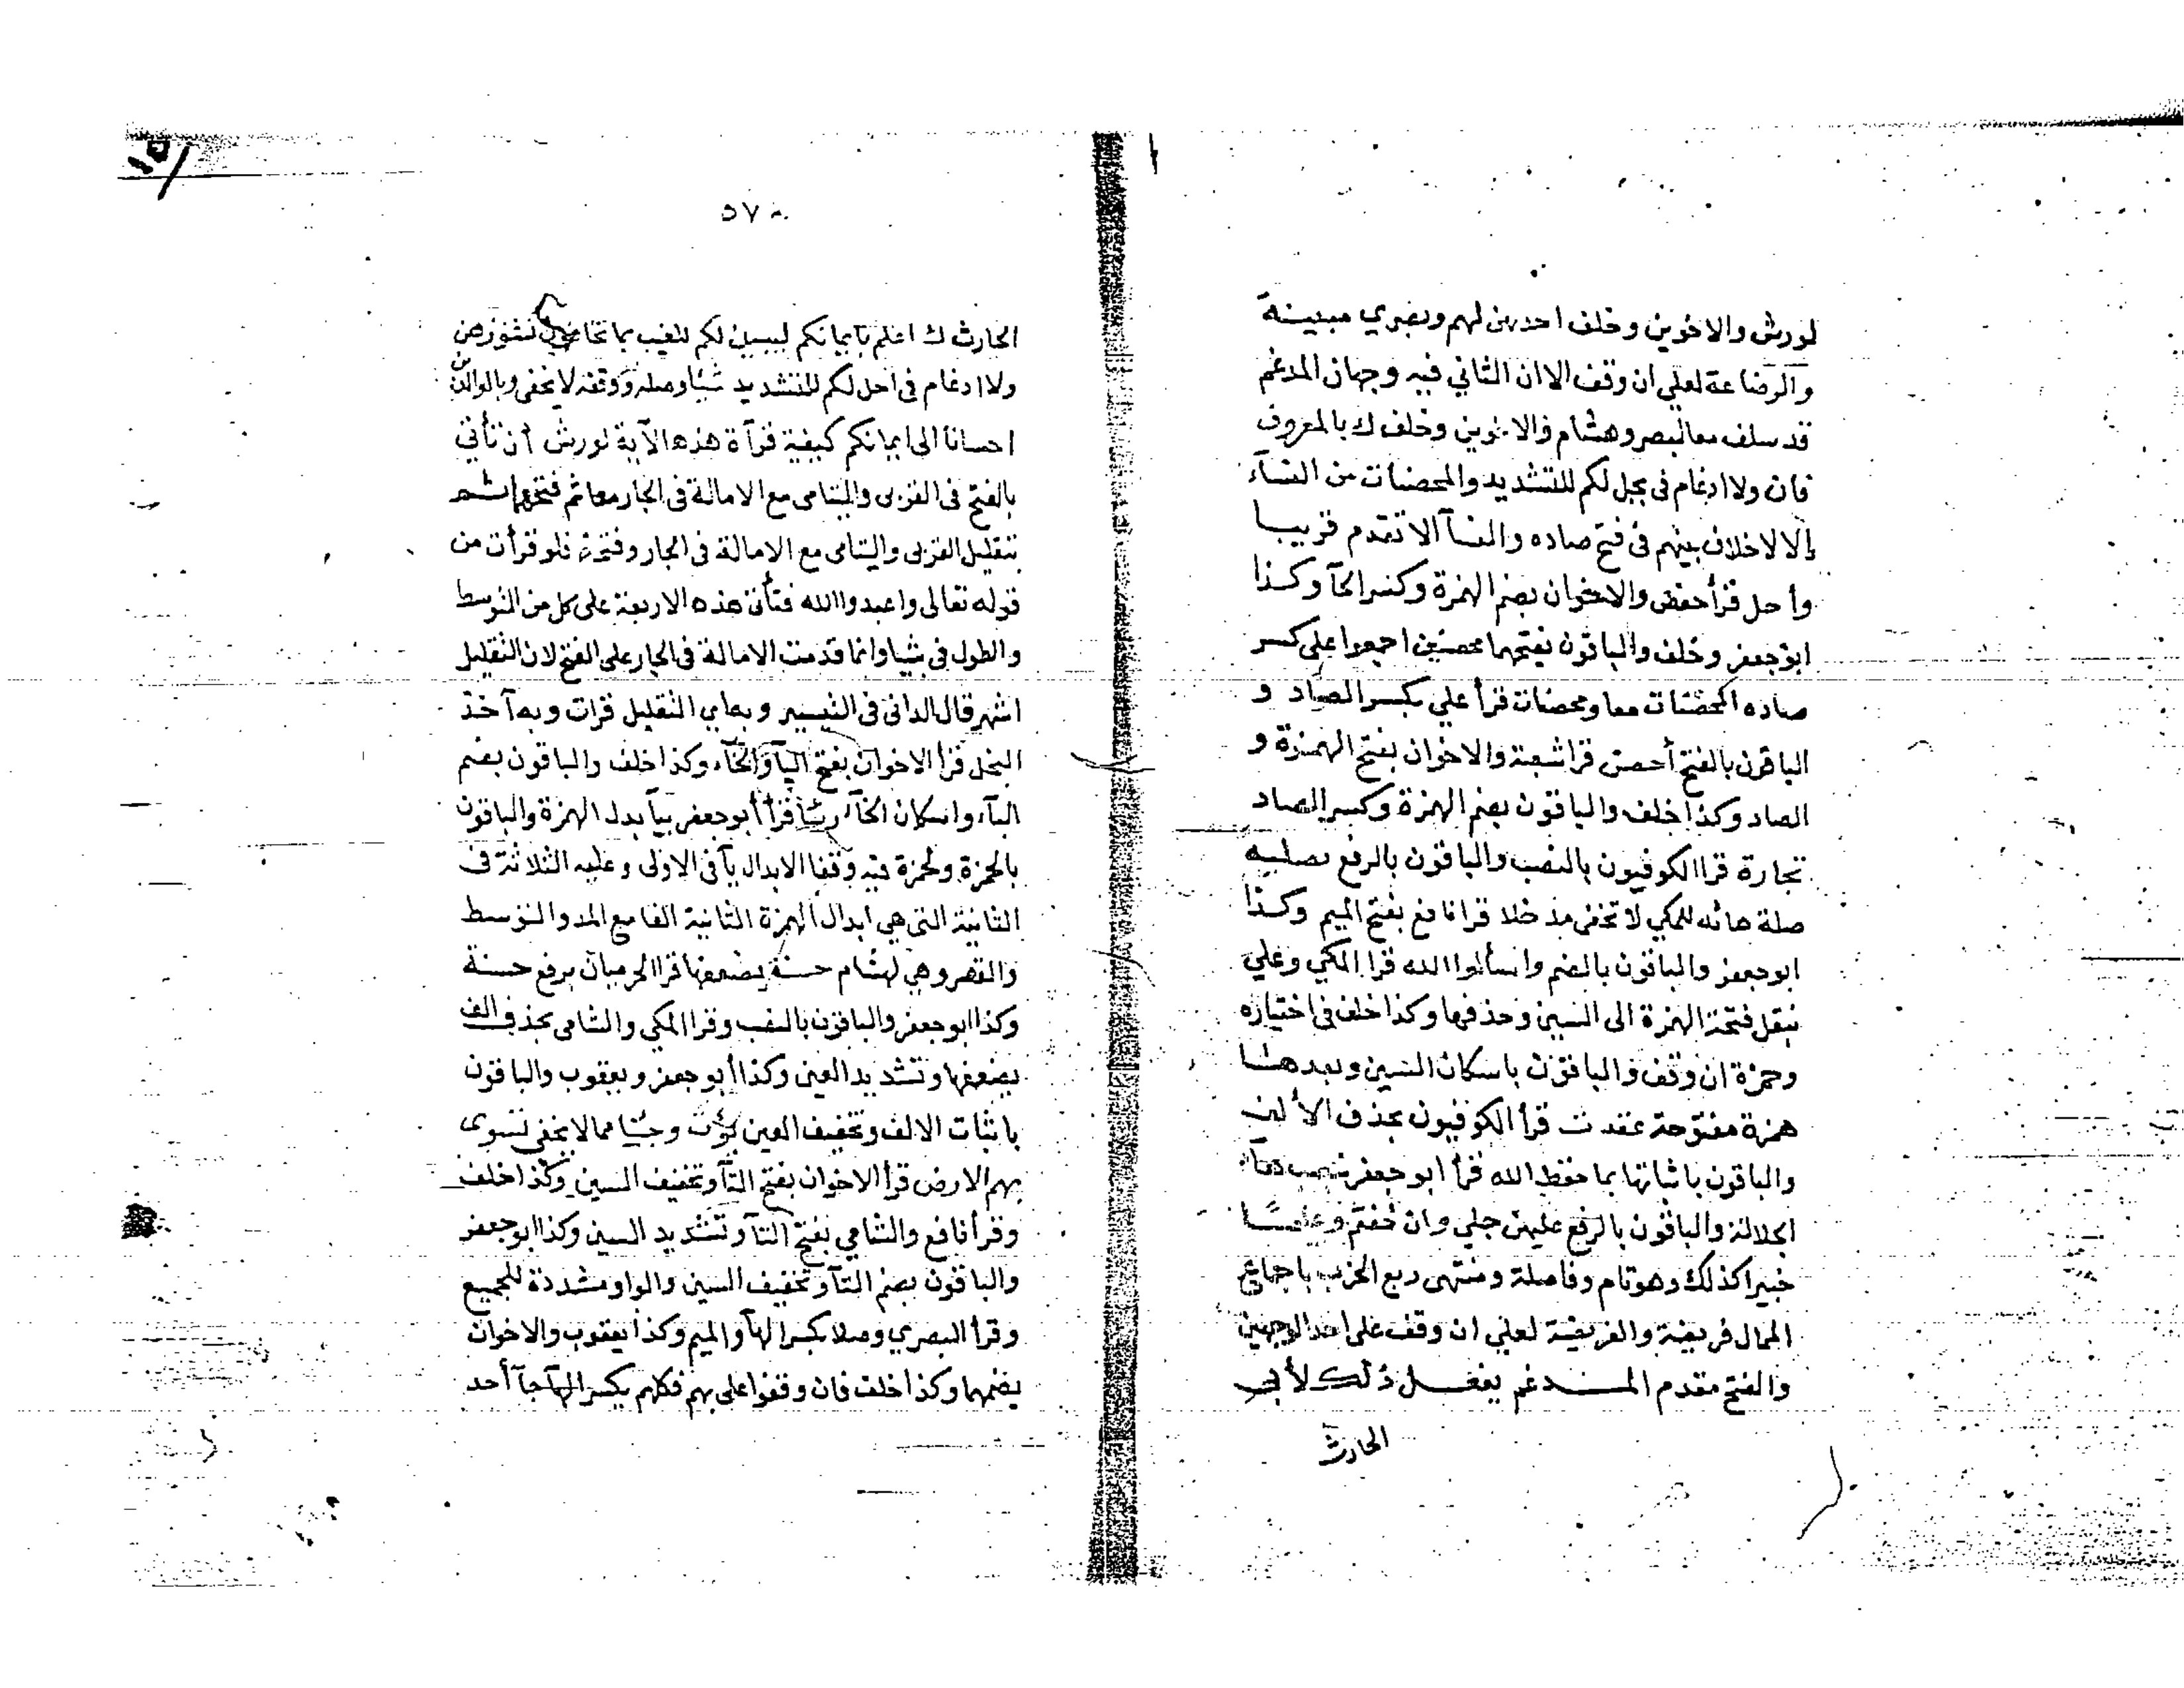 لورش والاخوين وخلف احديهن لهم وبصري مبينة
والرضاعة لعلي ان وقف الا ان الثاني فيه وجهان المدغم
قد سلف معا لبصر وهشام والاخوين وخلف ك بالمعروف
فان ولا ادغام في يحل لكم للتشديد والمحصنات من النسآء
إلا لا خلاف بينهم في فتح صاده والنسآ الا تقدم قريبا
وأحل قرأ حفص والاخوان بضم الهمزة وكسر الحآ وكذا
ابو جعفر وخلف والباقون بفتحهما محصنين اجمعوا على كسر
صاده المحصنات معا ومحصنات قرأ علي بكسر الصاد و
الباقون بالفتح أحصن قرا شعبة والاخوان بفتح الهمزة و
الصاد وكذا خلف والباقون بضم الهمزة وكسر الصاد
تجارة قرا الكوفيون بالنصب والباقون بالرفع نصليه
صلة هائه للمكي لا تخفى مدخلا قرا نافع بفتح الميم وكذا
ابو جعفر والباقون بالضم واسألوا الله قرا المكي وعلي
بنقل فتحة الهمزة الى السين وحذفها وكذا خلف في اختياره
وحمزة ان وقف والباقون باسكان السين وبعدها
همزة مفتوحة عقدت قرأ الكوفيون بحذف الألف
والباقون باثباتها بما حفظ الله قرأ ابو جعفر بنصب هآء
الجلالة والباقون بالرفع عليهن جلي وان خفتم وعليما
خبيرا كذلك وهو تام وفاصلة ومنتهى ربع الحزب باجماع
الممال فريضة والفريضة لعلي ان وقف على احد الوجهين
والفتح مقدم المدغم يفعل ذلك لأبي
الحارث
٥٧
الحارث ك اعلم بايمانكم ليبين لكم للغيب بما تخافون نشوزهن
ولا ادغام في احل لكم للتشديد شيئا وصله ووقفه لا يخفى وبالوالدين
احسانا الى ايمانكم كيفية قرآة هذه الآية لورش أن تأتي
بالفتح في القربى واليتامى مع الامالة في الجار معا ثم فتحهما ثم
بتقليل القربى واليتامى مع الامالة في الجار وفتحه فلو قرأت من
قوله تعالى واعبدوا الله فتأتي هذه الاربعة على كل من التوسط
والطول في شيا وانما قدمت الامالة في الجار على الفتح لان التقليل
اشهر قال الداني في التيسير وبه اي التقليل قرات وبه آخذ
البخل قرأ الاخوان بفتح البآ والخآء وكذا خلف والباقون بضم
البآء واسكان الخآء رئآ قرأ أبو جعفر بيآ بدل الهمزة والباقون
بالهمزة ولحمزة فيه وقفا الابدال يآ في الاولى وعليه الثلاثة في
الثانية التي هي ابدال الهمزة الثانية الفا مع المد والتوسط
والقصر وهي لهشام حسنة يضعفها قرا الحرميان برفع حسنة
وكذا ابو جعفر والباقون بالنصب وقرا المكي والشامي بحذف الف
يضعفها وتشديد العين وكذا أبو جعفر ويعقوب والباقون
باثبات الالف وتخفيف العين يؤت وجئنا مما لا يخفى تسوى
بهم الارض قرأ الاخوان بفتح التآ وتخفيف السين وكذا خلف
وقرأ نافع والشامي بفتح التآ وتشديد السين وكذا ابو جعفر
والباقون بضم التآ وتخفيف السين والواو مشددة للجميع
وقرأ البصري وصلا بكسر الهآ والميم وكذا يعقوب والاخوان
بضمهما وكذا خلف فان وقفوا على بهم فكلهم بكسر الهآ جآ أحد